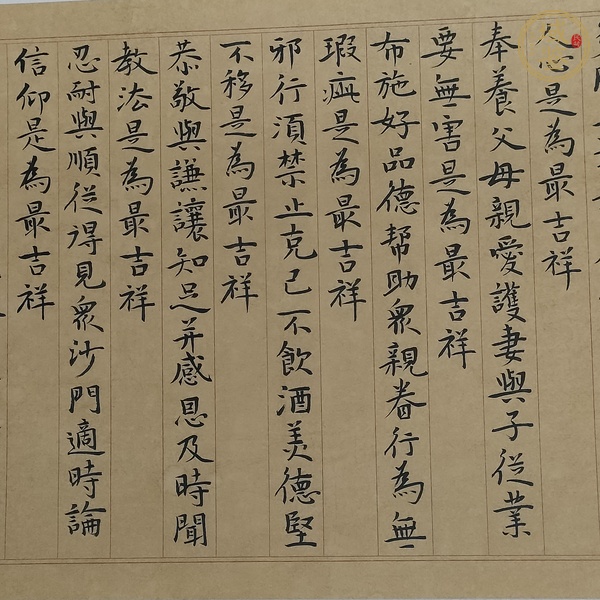 人心是為最吉祥
奉養父母親愛護妻與子從業
要無害是為最吉祥
布施好品德幫助眾親眷行為無
瑕疵是為最吉祥
邪行須禁止克己不飲酒美德堅
不移是為最吉祥
恭敬與謙讓知足并感恩及時聞
教法是為最吉祥
忍耐與順從得見眾沙門適時論
信仰是為最吉祥